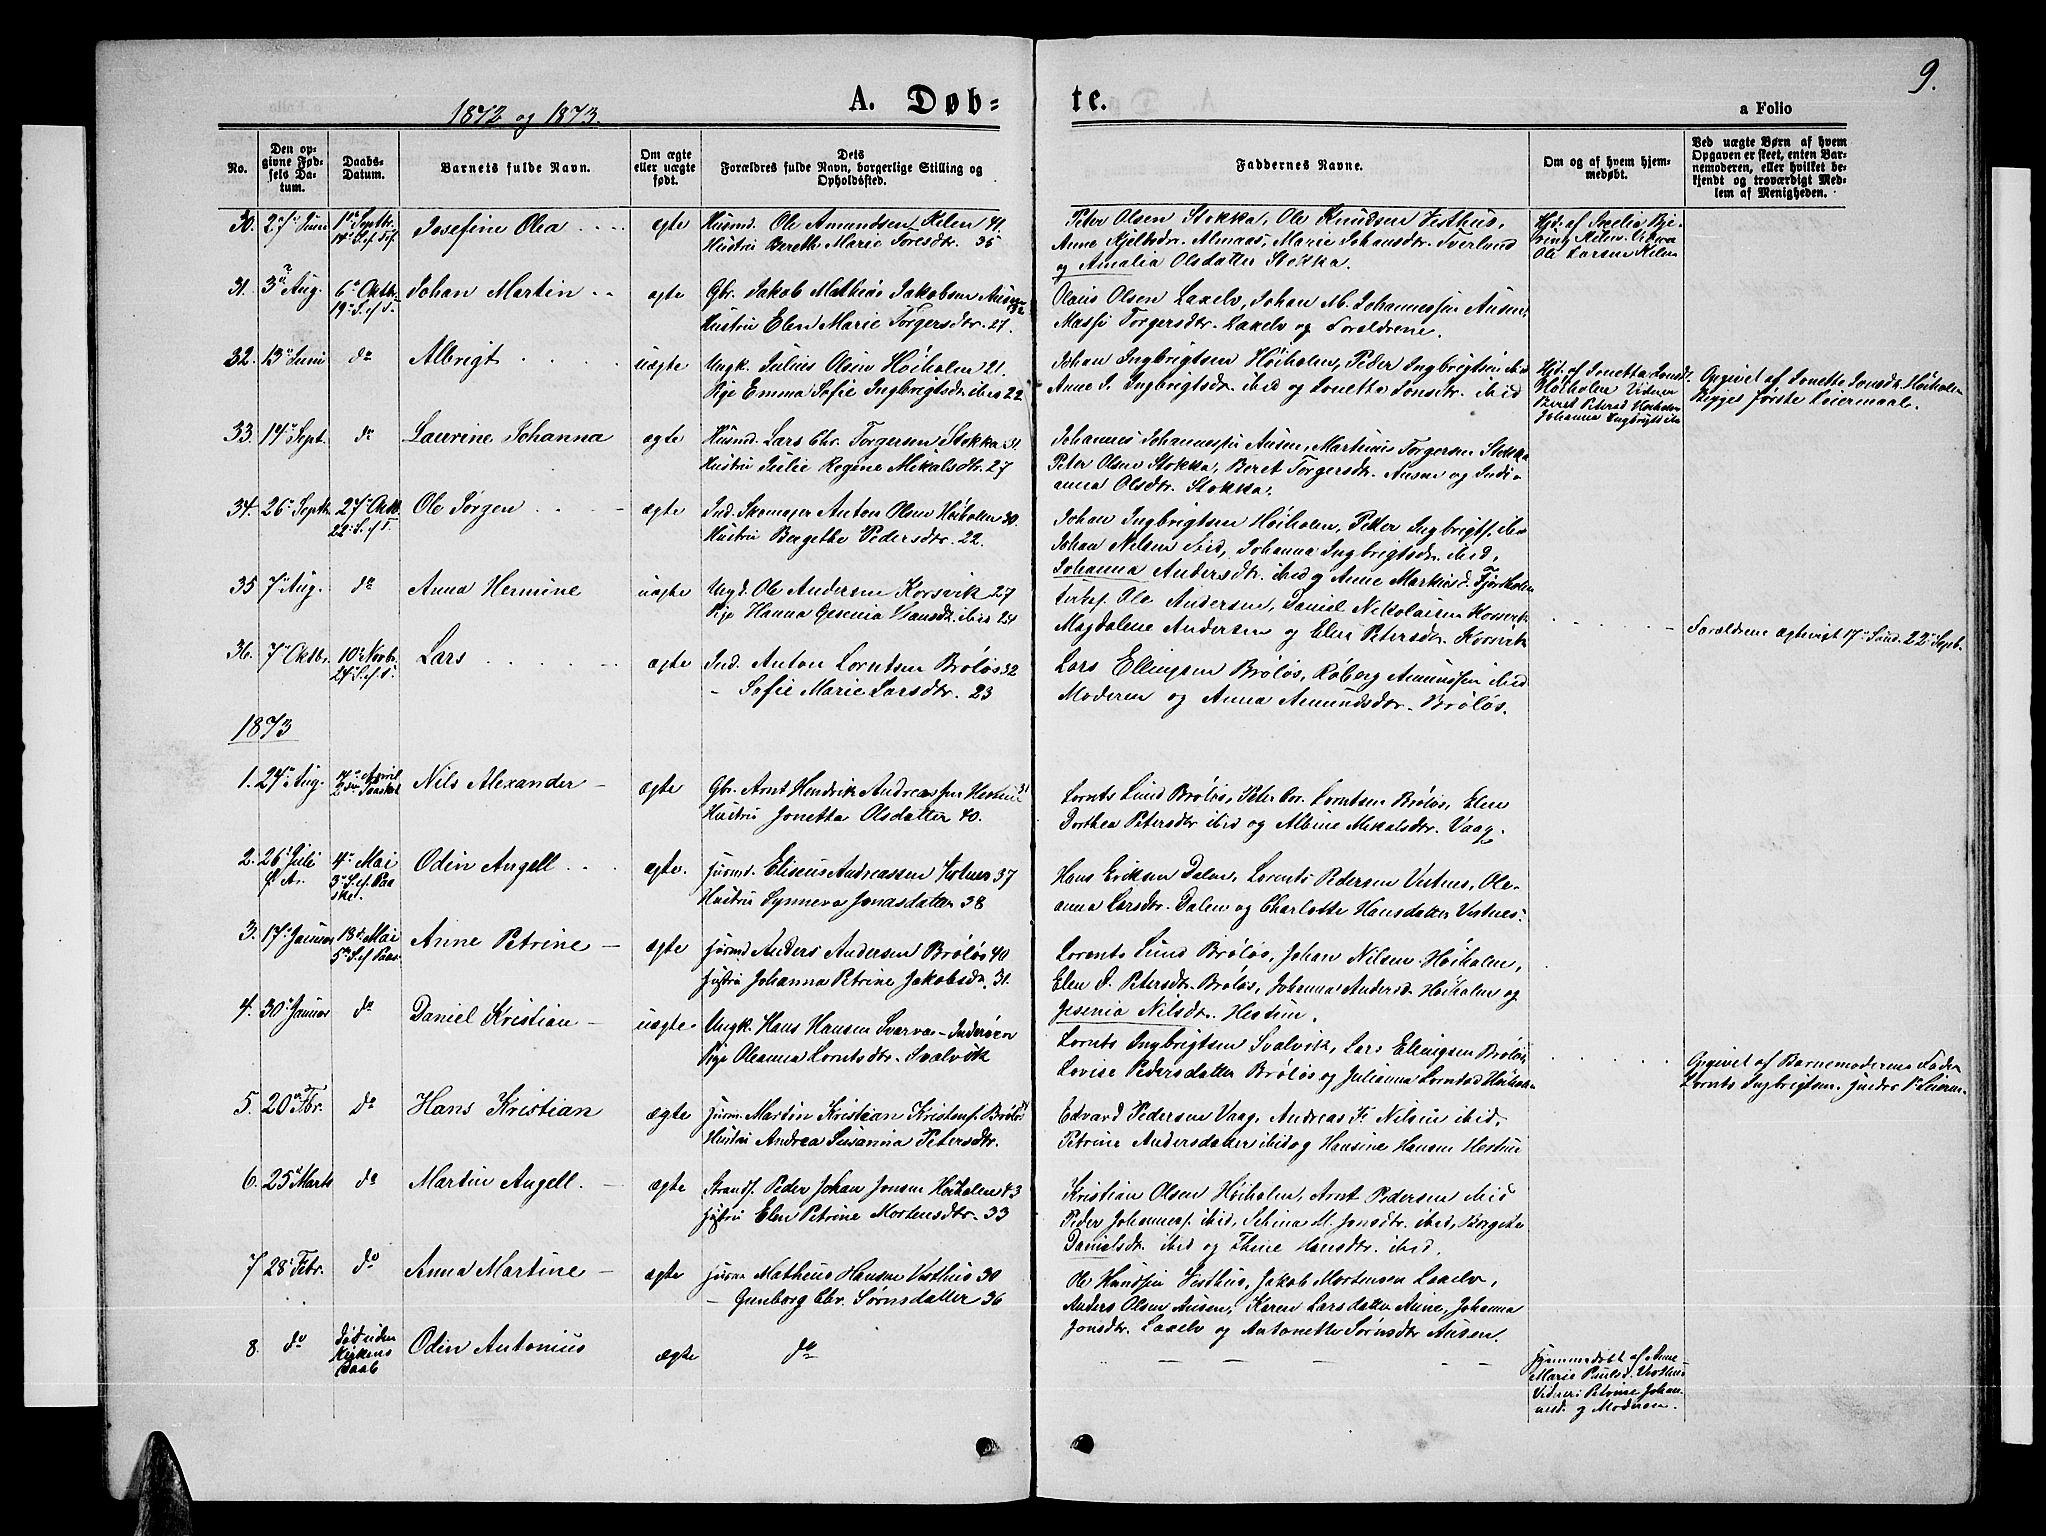 9.
1872 og 1873.
A. Døb-
te.
a Folio
No.
Den op-
givne Fød-
sels Da-
tum.
Daabs-
Datum.
Barnets fulde Navn.
Om ægte
eller uægte
født.
Dets
Forældres fulde Navn, borgerlige Stilling og
Opholdssted.
Faddernes Navne.
Om og af hvem hjem-
medøbt.
Ved uægte Børn af hvem
Opgaven er skeet, enten Bar-
nemoderen, eller hvilket be-
kjendt og troværdigt Med-
lem af Menigheden.
30. 27 Juni 1ste Septbr.
Josefine Olea ægte
Husmd. Ole Amundsen Kelen 41
Hustru Bereth Marie Toresdtr. 35
Peter Olsen Stokka, Ole Knudsen Vesthus,
Anne Kjeldsdr. Almaas, Marie Johansdtr. Tverland
og Amalia Olsdatter Stokka.
Ole Larsen Kelen
31. 3 Aug. 6 Oktbr.
19 S. ef. T.
Johan Martin ægte
Gbr. Jakob Mathias Jakobsen Ausen
Hustru Elen Marie Torgersdtr. 27.
Olaus Olsen Laxelv, Johan M. Johannessen Ausen,
Massi Torgersdtr. Laxelv og Forældrene.
32. 13 Juni do
Albrigt uægte
Ungk. Julius Olsen Høiholm 21.
Pige Emma Sofie Ingbrigtsdr. ibid 22
Johan Ingbrigtsen Høiholm, Peder Ingbrigtsen ibid
Anne J. Ingbrigtsdr. ibid og Jonetta Jonsdtr. ibid
Hjd. af Jonetta Jonsdt.
Høiholm Vidner
Beret Petersd Høiholm
Johanna Ingbrigtsd ibid
Opgivet af Jonetta Jonsdr. Høiholm
Begges første Leiermaal.
33. 14 Sept. do
Laurine Johanna ægte
Husmd. Lars Chr. Torgersen Stokka 31.
Hustru Julie Regine Mikalsdtr. 27
Johannes Johannessen Ausen, Martinus Torgersen Stokka
Peter Olsen Stokka, Beret Torgersdtr. Ausen og Indi-
anna Olsdtr. Stokka.
34. 26 Septbr. 27 Oktb.
22 S. ef. T.
Ole Jørgen ægte
Ind. Skomager Anton Olsen Høiholm 30.
Hustru Bergethe Pedersdtr. 22.
Johan Ingbrigtsen Høiholm, Petter Ingbrigts. ibid
Johan Nilsen ibid, Johanna Ingbrigtsdr. ibid,
Johanna Andersdtr. ibid og Anne Markusd. Fjordholm
35 7 Aug. do
Anna Hermine uægte
Ungk. Ole Andersen Korsvik 27
Pige Hanna Gesenia Hansdtr. ibid 24
Kirkes. Ole Andersen, Daniel Nikolaisen Korsvik
Magdalene Andersen og Elen Petersdtr. Korsvik
Forældrene ægteviet 17 Sønd. 22 Septb.
36. 7 Oktbr. 10 Novbr.
24 S. ef. T.
Lars ægte
Ind. Anton Lorntsen Broløs 32
– Sofie Marie Larsdtr. 23
Lars Ellingsen Broløs, Roberg Amundsen ibid
Moderen og Anna Amundsdtr. Broløs.
1873
1. 24 Aug.
Nils Alexander – ægte
Gbr. Arnt Hendrik Andreassen Hestun
Hustru Jonetta Olsdatter 40.
Lornts Lund Broløs, Peter Lorntsen Broløs, Elen
Dorthea Petersdtr ibid og Albine Mikalsdtr. Vaag.
2. 26 Juli
f. Ar. 4 Mai
3 S. ef. Paa-
ske.
Odin Angell ægte.
Husmd. Eliseus Andreassen Vistnes 37
Hustru Synneva Jonasdatter 38
Hans Eriksen Dalen, Lorents Pedersen Vistnes, Ole-
anna Larsdtr. Dalen og Charlotte Hansdatter Vistnes.
3. 17 Januar 18 Mai
5 S. ef. Paas.
Anne Petrine – ægte
Husmd Anders Andersen Broløs 40
Hustru Johanna Petrine Jakobsdr. 31.
Lorents Lund Broløs, Johan Nilsen Høiholm,
Elen D. Petersdtr. Broløs, Johanna Andersd. Høiholm og
Jesenia Nilsdtr. Hestun.
4. 30 Januar do
Daniel Kristian – uægte
Ungk. Hans Hansen Svarva – Inderøen
Pige Oleanna Lorntsdtr. Svalvik
Lornts Ingbrigtsen Svalvik, Lars Ellingsen Broløs
Lovise Pedersdatter Broløs og Julianna Lorntsd Høiholm
Opgivet af Barnemoderens Fader
Lornts Ingbrigtsen.
5. 20 Fbr. do
Hans Kristian ægte
Husm. Martin Kristian Kristens. Broløs
Hustru Andrea Susanna Petersdtr.
Edvard Pedersen Vaag, Andreas Fr. Nilsen ibid,
Petrine Andersdatter ibid og Hansine Hansen Hestun
6. 25 Marts do
Martin Angell. ægte
Strands. Peder Johan Jonsen Høiholm 43
Hustru Elen Petrine Mortensdtr. 33
Kristian Olsen Høiholm, Arnt Pedersen ibid
Peder Johannes. ibid, Selina M. Jonsdtr. ibid, Bergethe
Danielsdtr. ibid og Hansdtr. ibid.
7 28 Febr. do
Anna Martine – ægte
Husm Matheus Hansen Vesthus 30
– Gunborg Chr. Sørnsdatter 36
Ole Hanssen Vesthus, Jakob Mortensen Laxelv,
Anders Olsen Ausen, Karen Larsdatter Aune, Johanna
Jonsdtr. Laxelv og Antonette Sørnsdtr Ausen.
8. do
Død inden
Kirkens
Daab
Odin Antonius ægte do
– – – – –
Hjemmedøbt af Anne
Marie Paulsd. Vesthus
Vidner: Petrine Johan-
nesd. og Moderen.